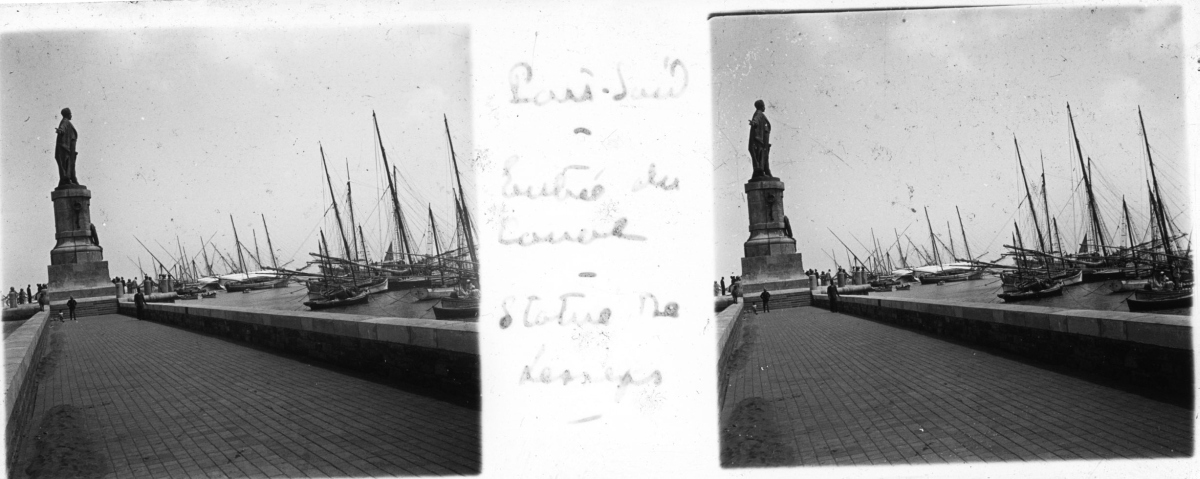 Port-Saïd
-
Entrée du
Canal
-
Statue De
Lesseps
-